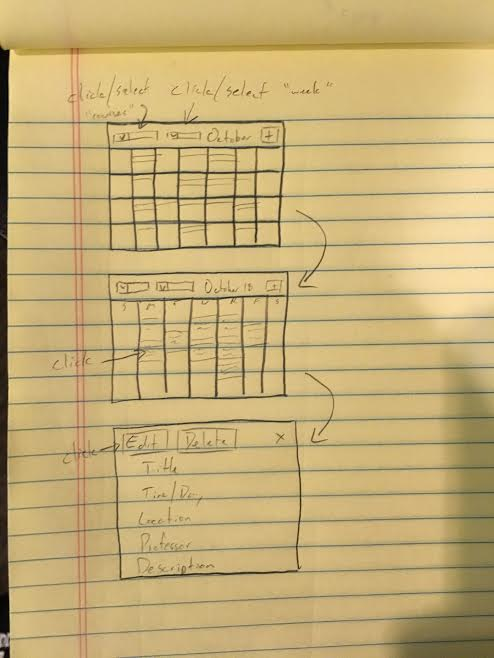 click/select click/select "week"
"courses"
October +
October 18 +
S M T W R F S
click
click Edit Delete X
Title
Time/Day
Location
Professor
Description